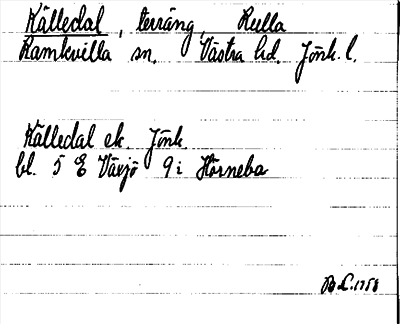 Källedal, terräng, Rulla
Ramkvilla sn. Västra hd. Jönk. l.
Källedal ek. Jönk.
bl. 5 E Växjö 9 i Hörneba
B.L. 1958